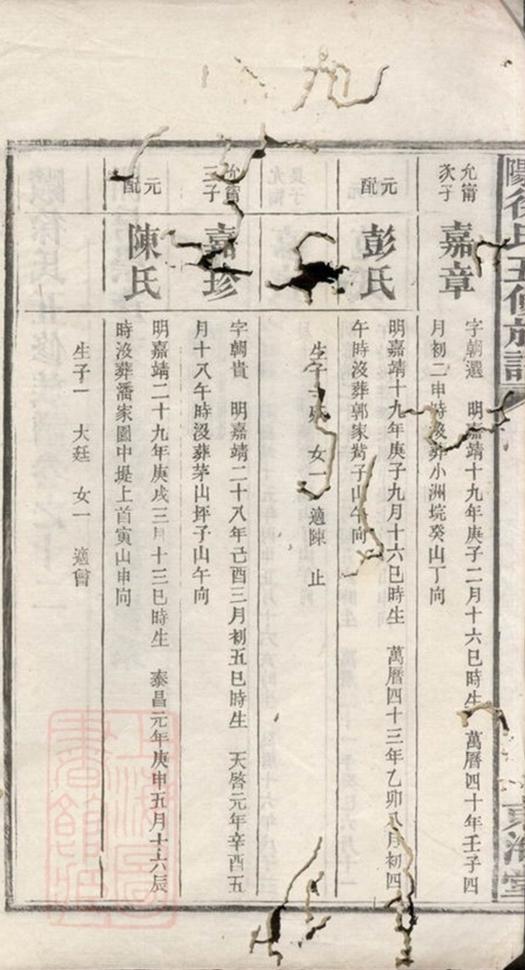 陽徐氏五修族譜
東海堂
允甯次子
嘉章
字朝選　明嘉靖十九年庚子二月十六巳時生　萬曆四十年壬子四
月初二申時沒葬小洲垸癸山丁向
元配
彭氏
明嘉靖十九年庚子九月十六巳時生　萬曆四十三年乙卯八月初四
午時沒葬郭家嘴子山午向
生子　女一　適陳　止
允甯三子
嘉珍
字朝貴　明嘉靖二十八年己酉三月初五巳時生　天啓元年辛酉五
月十八午時沒葬茅山坪子山午向
元配
陳氏
明嘉靖二十九年庚戌三月十三巳時生　泰昌元年庚申五月十六辰
時沒葬潘家圖中堤上首寅山申向
生子一　大廷　女一　適曾